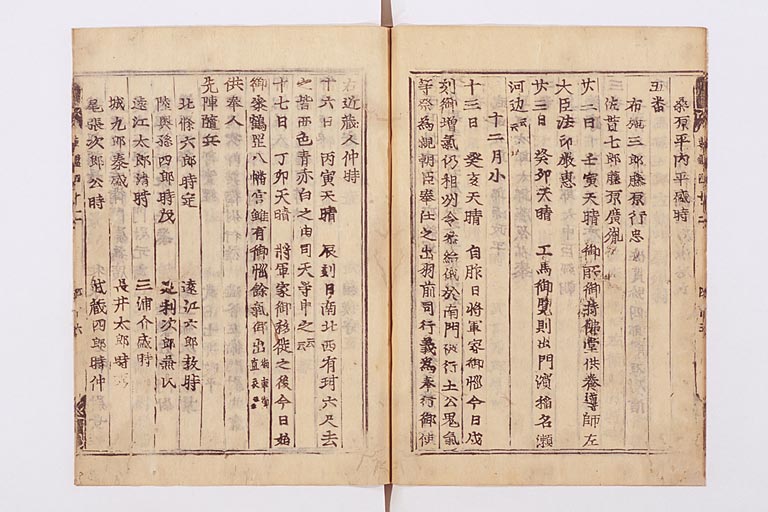 桑原平内平盛時
五番
布施三郎藤原行忠
佐貫七郎藤原廣胤
廿二日 壬寅天晴 御所御持佛堂供養導師左
大臣法印厳恵
廿三日 癸卯天晴 工馬御覧則出門濱稲名瀬
河辺云云
十二月小
十三日 癸亥天晴 自昨日將軍家御悩今日戌
刻御増氣仍相州令参給儀於南門被行土公鬼氣
等祭為親朝臣奉仕之出羽前司行義為奉行御使
右近蔵人仲時
十六日 丙寅天晴 辰刻日南北西有珥六尺去
之皆西色青赤白之由司天等申之云云
十七日 丁卯天晴 將軍家御移徙之後今日始
御參鶴罡八幡宮雖有御悩餘氣御出
供奉人
先陣隨兵
北條六郎時定 遠江六郎教時
陸奥孫四郎時茂 足利次郎兼氏
遠江太郎清時 三浦介盛時
城九郎泰盛 長井太郎時
尾張次郎公時 武蔵四郎時仲